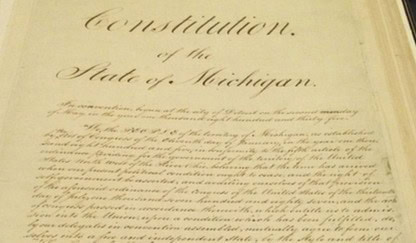 Constitution.
of the
State of Michigan.
In convention, begun at the city of Detroit on the second monday
of May in the year one thousand eight hundred and thirty five.
We, the PEOPLE of the territory of Michigan, as established
by Act of Congress of the Eleventh day of January, in the year one thou-
sand eight hundred and five, in conformity to the fifth article of the
ordinance providing for the government of the territory of the United
States North West of the River Ohio, believing that the time has arrived
when our present political condition ought to cease, and the right of
self-government be asserted; and availing ourselves of that provision
of the aforesaid ordinance of the congress of the United States of the thirteenth
day of July one thousand seven hundred and eighty seven, and the acts
of congress passed in accordance therewith, which entitle us to admis-
sion into the Union, upon a condition which has been fulfilled, do,
by our delegates in convention assembled, mutually agree to form our
selves into a free and independent state, by the style and title of